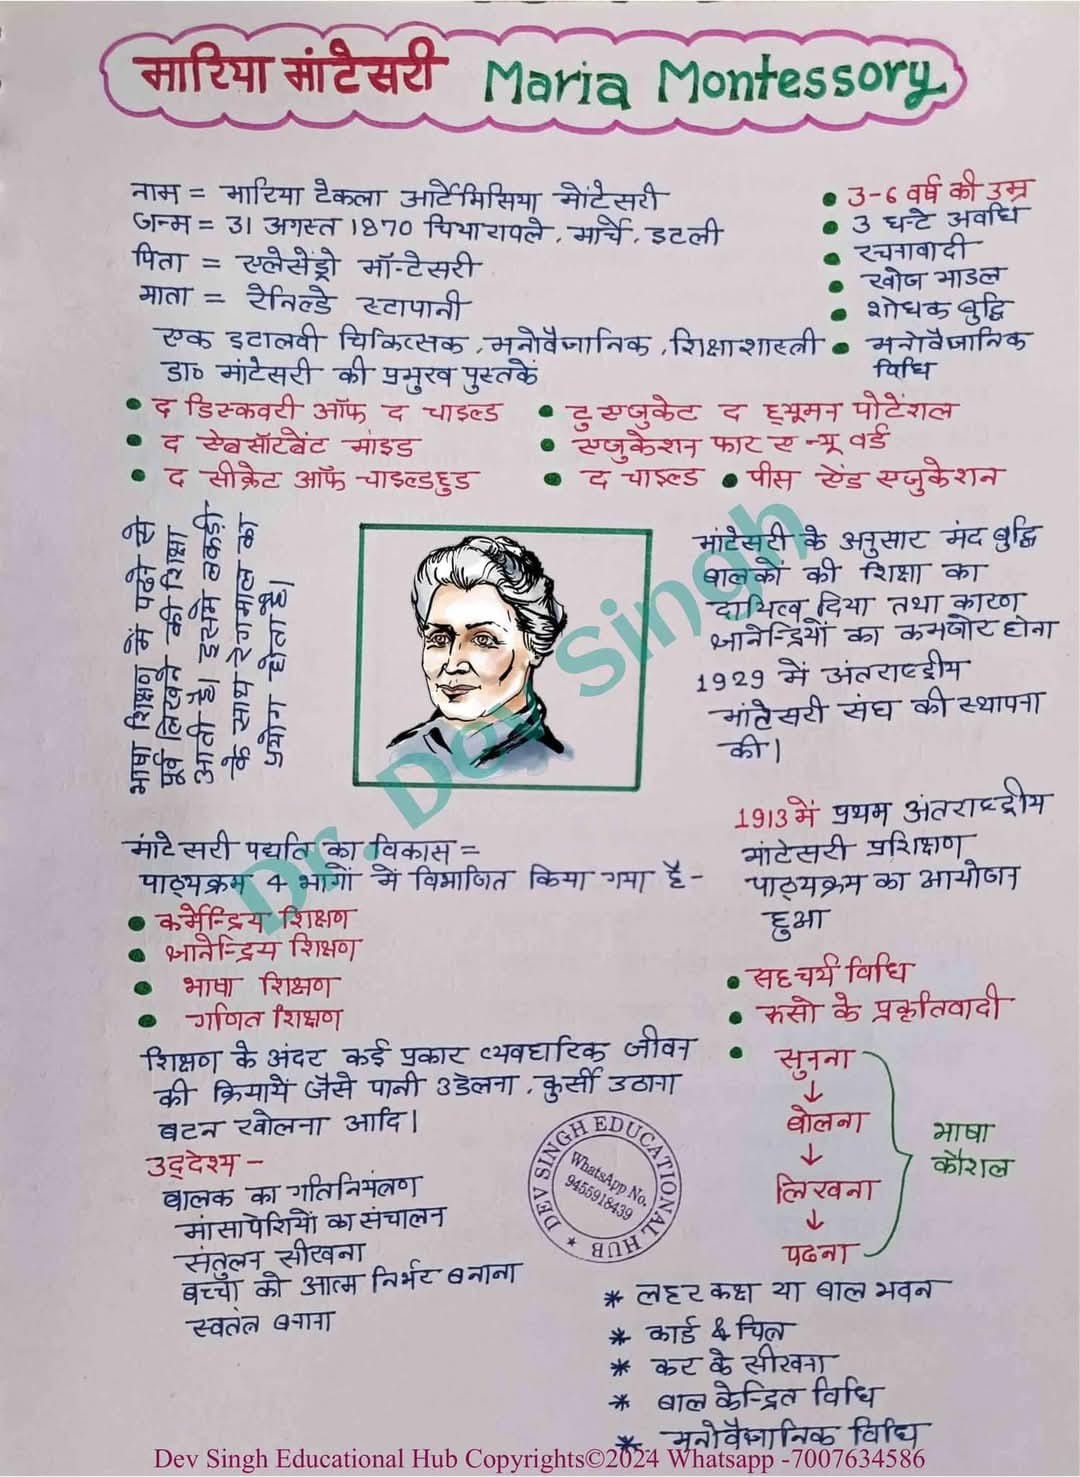 मारिया मांटेसरी Maria Montessory
नाम = मारिया टेकला आर्टेमिसिया मोंटेसरी
जन्म = 31 अगस्त 1870 चियारावले, मार्चे, इटली
पिता = एलेसेंड्रो मॉन्टेसरी
माता = रेनिल्डे स्टापानी
एक इटालवी चिकित्सक, मनोवैज्ञानिक, शिक्षाशास्त्री
डा० मांटेसरी की प्रमुख पुस्तकें
• 3-6 वर्ष की उम्र
• 3 घन्टे अवधि
• रचनावादी
• खोज माडल
• शोधक बुद्धि
• मनोवैज्ञानिक
विधि
• द डिस्कवरी ऑफ द चाइल्ड
• द ऐब्सॉटबेंट माइंड
• द सीक्रेट ऑफ चाइल्डहुड
• टु एजुकेट द ह्यूमन पोटेंशल
• एजुकेशन फार ए न्यू वर्ड
• द चाइल्ड • पीस ऐंड एजुकेशन
भाषा शिक्षण में पढने से
पूर्व लिखने की शिक्षा
आती है। इसमे लकड़ी
के साथ रेगमाल का
प्रयोग होता है।
मांटेसरी के अनुसार मंद बुद्धि
बालको की शिक्षा का
दायित्व दिया तथा कारण
ज्ञानेन्द्रियों का कमजोर होना
1929 में अंतराष्ट्रीय
मांतेसरी संघ की स्थापना
की।
1913 में प्रथम अंतराष्ट्रीय
मांटेसरी प्रशिक्षण
पाठ्यक्रम का आयोजन
हुआ
मांटेसरी पद्यति का विकास =
पाठ्यक्रम 4 भागों में विभाजित किया गया है -
• कर्मेन्द्रिय शिक्षण
• ज्ञानेन्द्रिय शिक्षण
• भाषा शिक्षण
• गणित शिक्षण
शिक्षण के अंदर कई प्रकार व्यवहारिक जीवन
की क्रियायें जैसे पानी उडेलना, कुर्सी उठाना
बटन खोलना आदि।
उद्देश्य -
बालक का गतिनियंत्रण
मांसापेशियों का संचालन
संतुलन सीखना
बच्चा को आत्म निर्भर बनाना
स्वतंत्र बनाना
• सहचर्य विधि
• रूसो के प्रकृतिवादी
• सुनना
↓
बोलना
↓
लिखना
↓
पढना
भाषा
कौशल
* लहर कक्ष या बाल भवन
* कार्ड & चित्र
* कर के सीखना
* बाल केन्द्रित विधि
* मनोवैज्ञानिक विधि
Dr. Dev Singh
DEV SINGH EDUCATIONAL HUB
WhatsApp No.
9455918439
Dev Singh Educational Hub Copyrights©2024 Whatsapp -7007634586